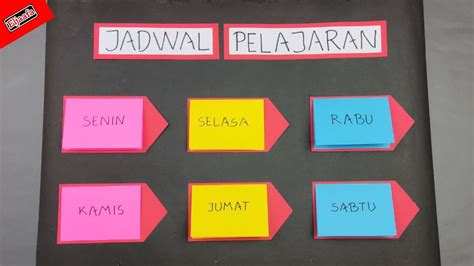 JADWAL PELAJARAN
SENIN SELASA RABU
KAMIS JUMAT SABTU